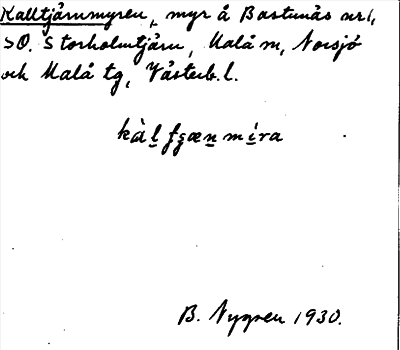 Kalltjärnmyren, myr å Bastunäs nr 1,
SO. Storholmtjärn, Malå m, Norsjö
och Malå tg, Västerb. l.
kàl̲ fgæn̲ mi̲ra
B. Nygren 1930.